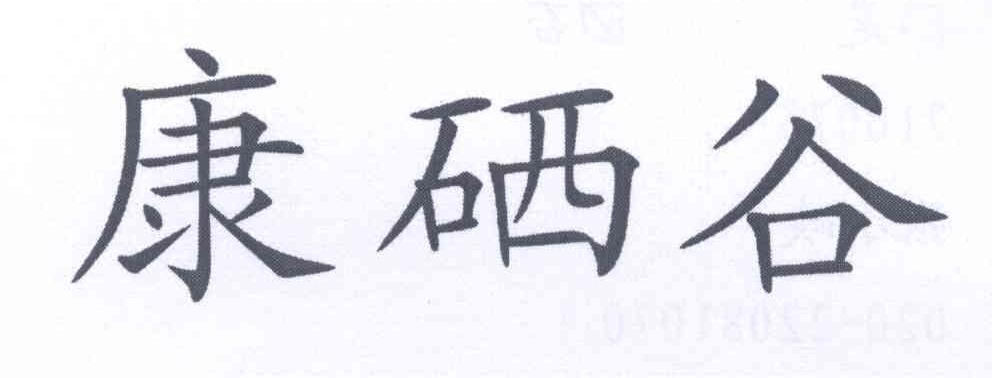 康硒谷